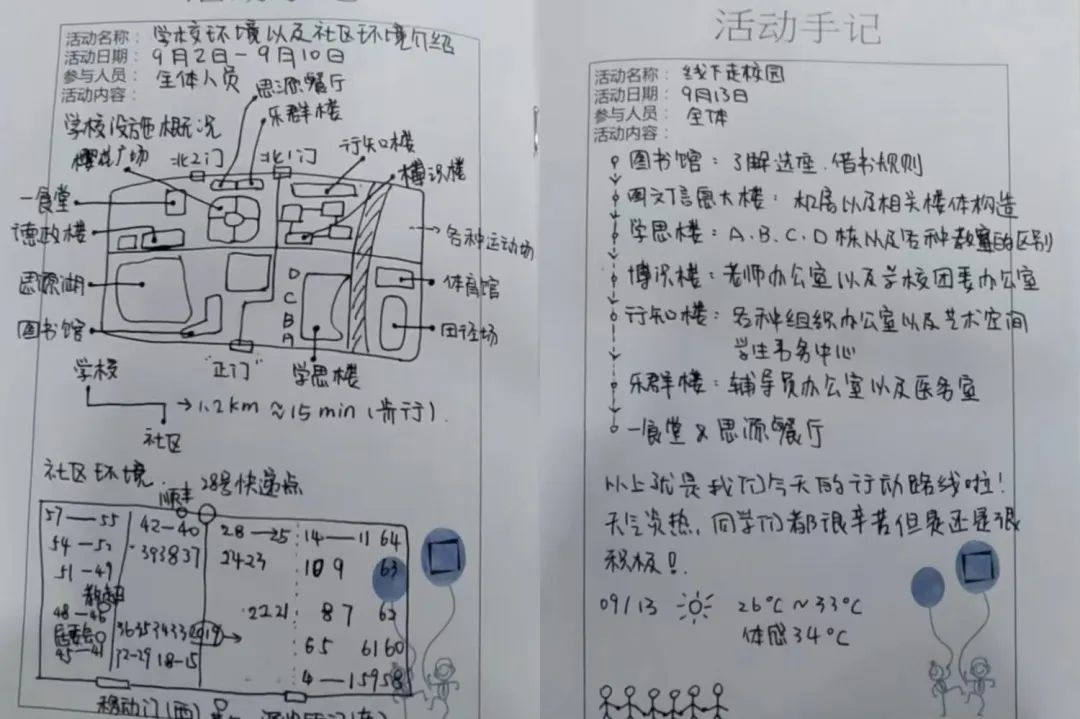 活动名称： 学校环境以及社区环境介绍
活动日期： 9月2日-9月10日
参与人员： 全体人员
活动内容：
思源餐厅
乐群楼
学校设施概况
樱花广场
北2门
北1门
行知楼
博识楼
一食堂
德政楼
各种运动场
思源湖
D
C
B
A
体育馆
图书馆
田径场
"正门"
学思楼
学校
→1.2km≈15min(步行).
社区
社区环境
顺丰
28号快递点
57——55
42-40
28—25
14——11
64
54-52
393837
2423
10 9
63
51-49
48-46
2221
8 7
62
居委会
36353433
2019
6 5
6160
45-41
32-29
18-15
4—1
5958
移动门(西)
活动手记
活动名称： 线下走校园
活动日期： 9月13日
参与人员： 全体
活动内容：
图书馆：了解选座、借书规则
图文信息大楼：机房以及相关楼体构造
学思楼：A、B、C、D栋以及各种教室的区别
博识楼：老师办公室以及学校团委办公室
行知楼：各种组织办公室以及艺术空间
学生事务中心
乐群楼：辅导员办公室以及医务室
一食堂&思源餐厅
以上就是我们今天的行动路线啦！
天气炎热，同学们都很辛苦但是还是很
积极！
09/13
26°C~33°C
体感34°C